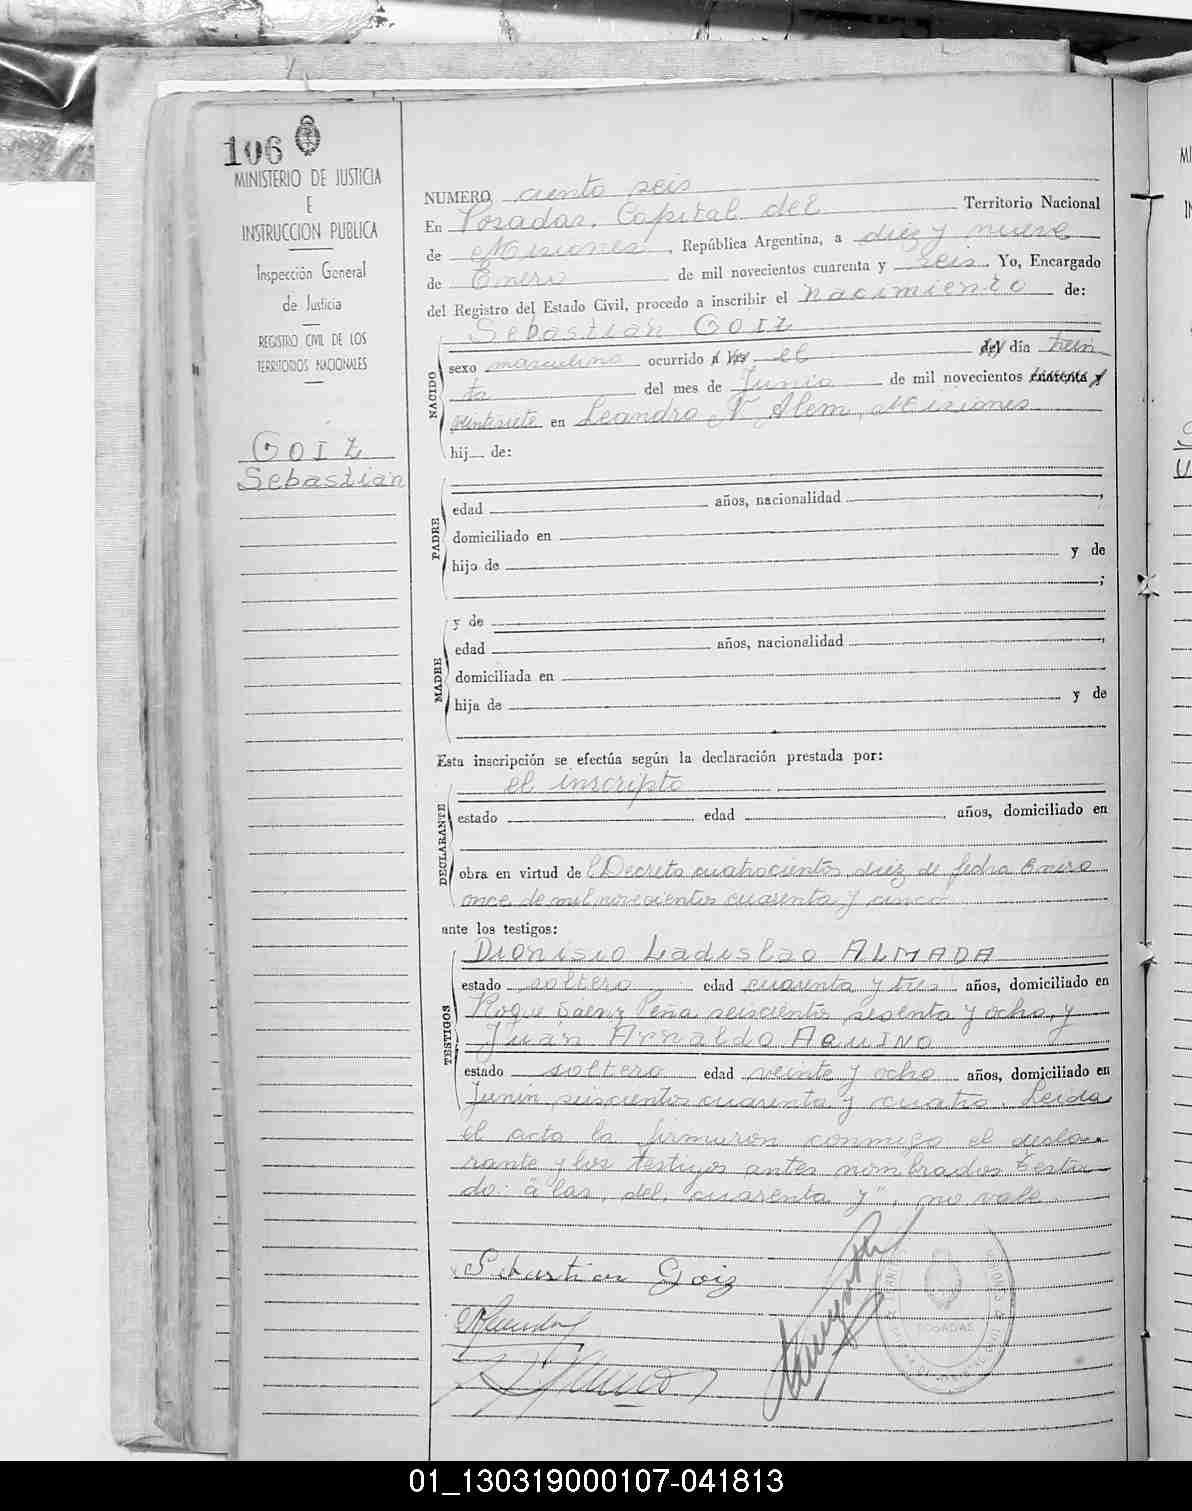 106
MINISTERIO DE JUSTICIA
E
INSTRUCCION PUBLICA
Inspección General
de Justicia
REGISTRO CIVIL DE LOS
TERRITORIOS NACIONALES
GOIZ
Sebastian
NUMERO ciento seis
En Posadas, Capital del Territorio Nacional
de Misiones, República Argentina, a diez y nueve
de Enero de mil novecientos cuarenta y seis. Yo, Encargado
del Registro del Estado Civil, procedo a inscribir el nacimiento de:
Sebastian GOIZ
NACIDO
sexo masculino ocurrido a las el del día trein
ta del mes de Junio de mil novecientos cuarenta y
veintisiete en Leandro N. Alem, Misiones
hij de:
PADRE
edad años, nacionalidad ,
domiciliado en
hijo de y de
;
MADRE
y de
edad años, nacionalidad ,
domiciliada en
hija de y de
Esta inscripción se efectúa según la declaración prestada por:
DECLARANTE
el inscripto
estado edad años, domiciliado en
obra en virtud de Decreto cuatrocientos diez de fecha Enero
once de mil novecientos cuarenta y cinco
ante los testigos:
TESTIGOS
Dionisio Ladislao ALMADA
estado soltero edad cuarenta y tres años, domiciliado en
Roque Saenz Peña seiscientos sesenta y ocho, y
Juan Arnaldo AQUINO
estado soltero edad veinte y ocho años, domiciliado en
Junin seiscientos cuarenta y cuatro. Leida
el acta la firmaron conmigo el decla-
rante y los testigos antes nombrados. Testa-
do: "a las, del, cuarenta y", no vale
Sebastian Goiz
POSADAS
01_130319000107-041813